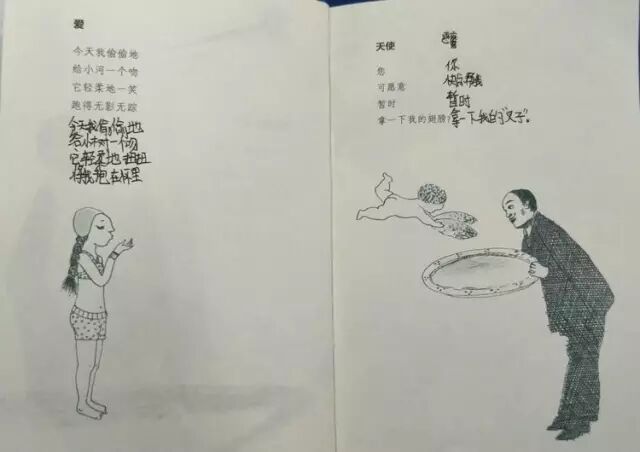 爱
今天我偷偷地
给小河一个吻
它轻柔地一笑
跑得无影无踪
今天我偷偷地
给小树一吻
它轻柔地扭扭
将我抱在怀里
天使 恶魔
您 你
可愿意
暂时 暂时
拿一下我的翅膀? 拿一下我的"叉子"。